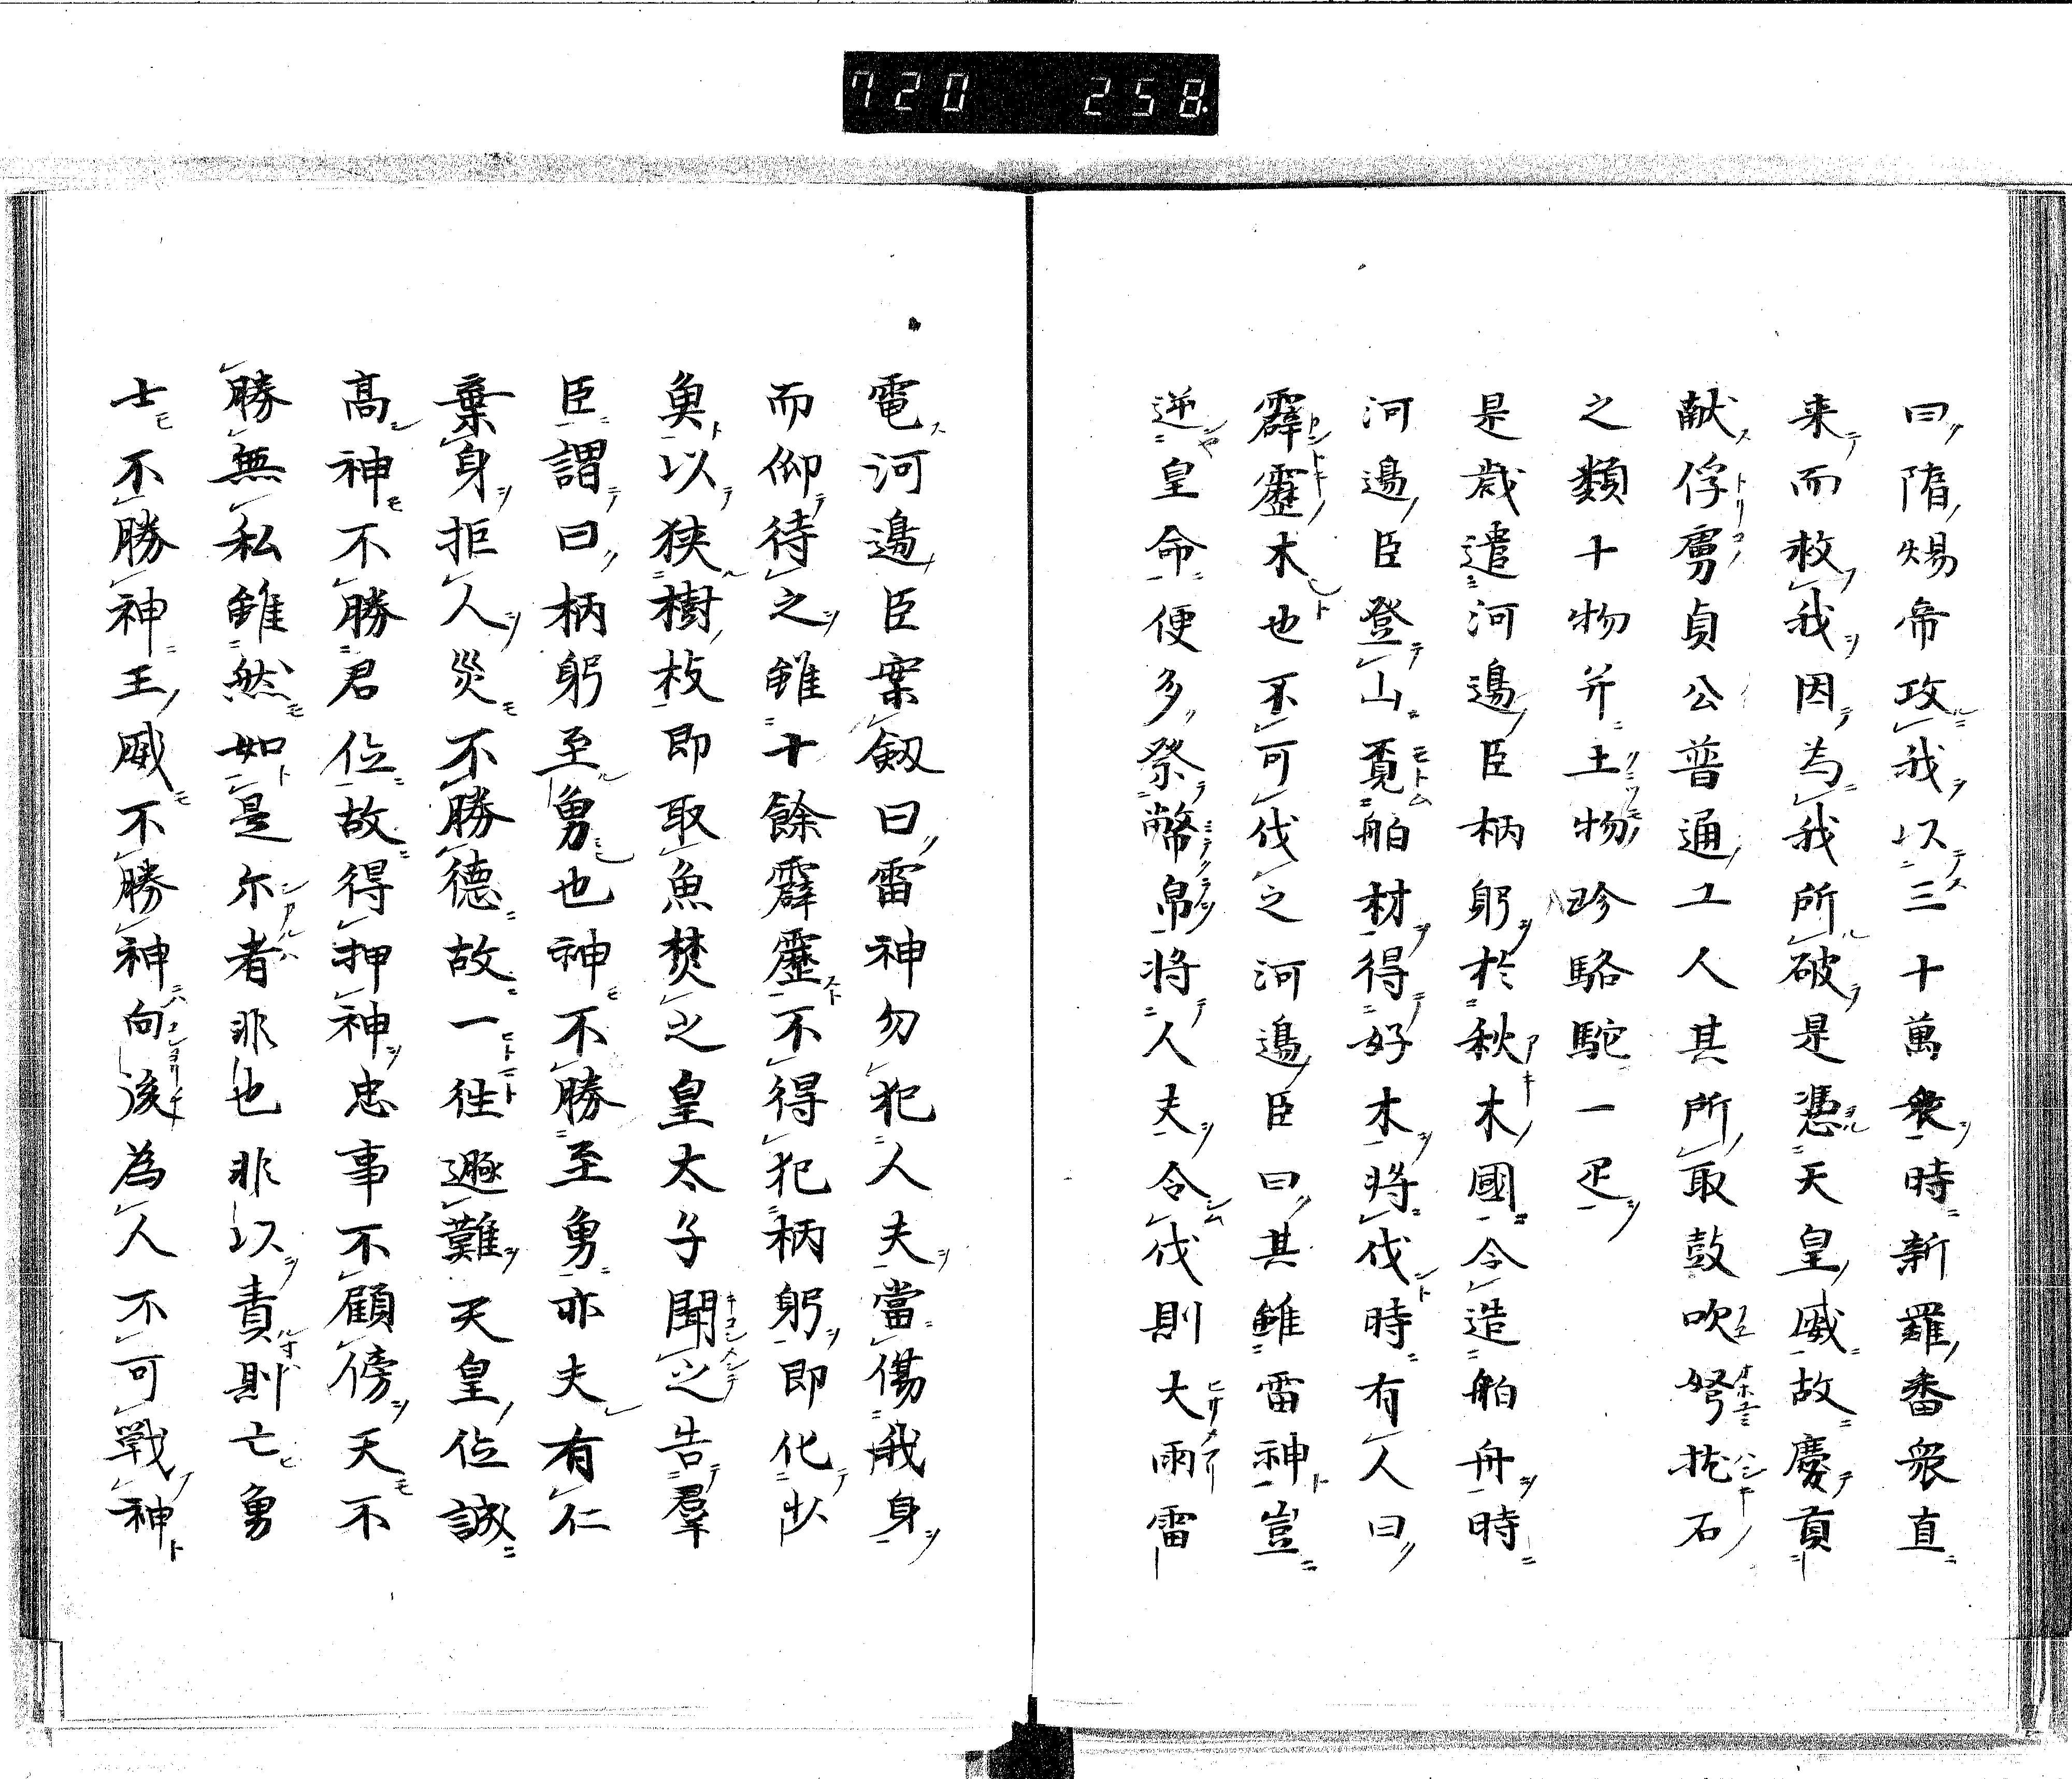 720 258
曰隋煬帝攻我以三十萬衆時新羅番衆直
来而救我因為我所破是憑天皇威故慶貢
献俘虜貞公普通工人其所取鼓吹弩抛石
之類十物并土物珍駱駝一疋
是歳遣河邊臣柄躬於秋木國令造舶舟時
河邊臣登山覓舶材得好木将伐時有人曰
霹靂木也不可伐之河邊臣曰其雖雷神豈
逆皇命便多祭幣帛将人夫令伐則大雨雷
電河邊臣案劔曰雷神勿犯人夫當傷我身
而仰待之雖十餘霹靂不得犯柄躬即化少
魚以挟樹枝即取魚焚之皇太子聞之告羣
臣謂曰柄躬至勇也神不勝至勇亦夫有仁
棄身拒人災不勝德故一往遁難天皇位誠
高神不勝君位故得押神忠事不顧傍天不
勝無私雖然如是尓者非也非以責則亡勇
士不勝神王威不勝神向後為人不可戰神